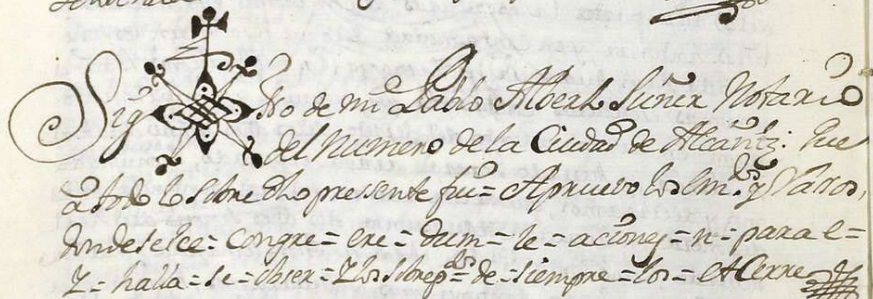 Sig no de mi Pablo Albert Suñer Notario
del Numero de la Ciudad de Alcañiz: que
a todo lo sobre dho presente fui = Apruevo los Em.dos y Varros,
donde se lee = congre = ere = dum = le = aciones = n = para = e =
Z = halla = se = obser = Z los sobrep.tos = de = siempre = los = et Cerre